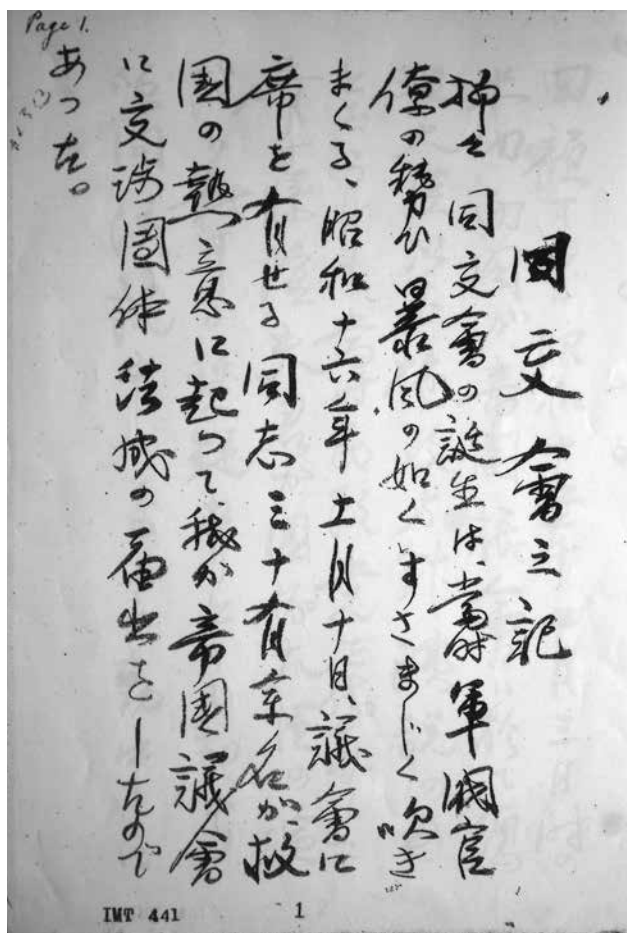 Page 1.
同交會之記
抑々同交會の誕生は、當時軍閥官
僚の勢ひ暴風の如くすさまじく吹き
まくる、昭和十六年十一月十日、議會に
席を有せる同志三十有余名が、救
國の熱意に起つて我が帝國議會
に交渉團体結成の届出をしたので
あつた。
IMT 441
1